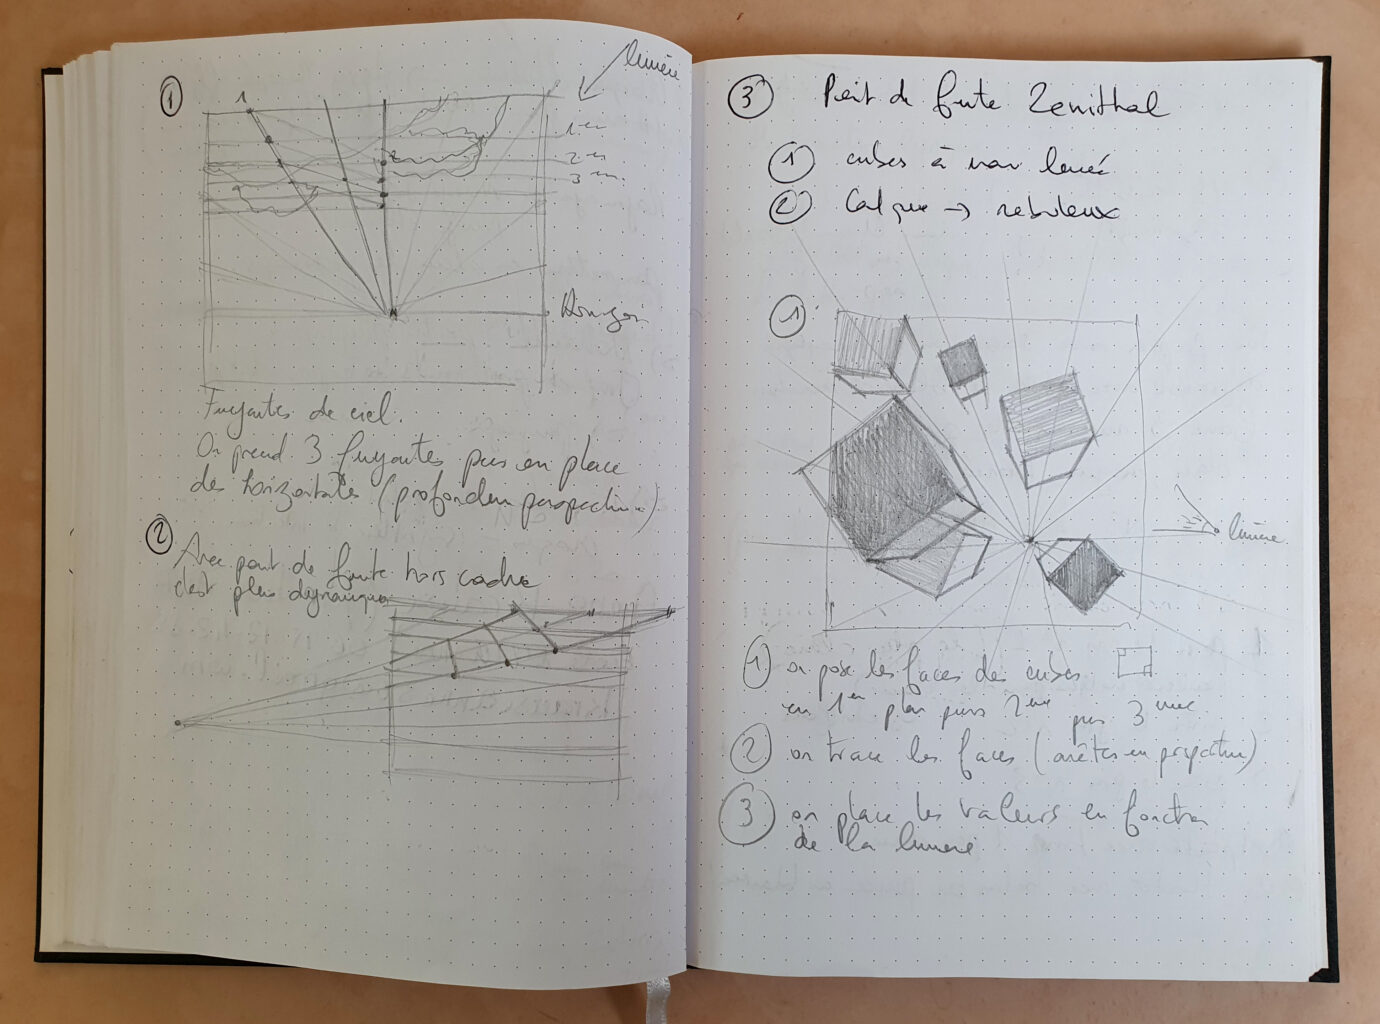 1
lumière
1
1er
2es
3
Horizon
Fuyantes de ciel.
On prend 3 fuyantes puis on place
des horizontales (profondeur perspective)
2
Avec point de fuite hors cadre
c'est plus dynamique
3 Point de fuite Zenithal
1 cubes à main levée
2 Calque → nebuleux
1
lumière
1 on pose les faces des cubes
en 1er plan puis 2eme puis 3eme
2 on trace les faces (arêtes en perspective)
3 on place les valeurs en fonction
de la lumière